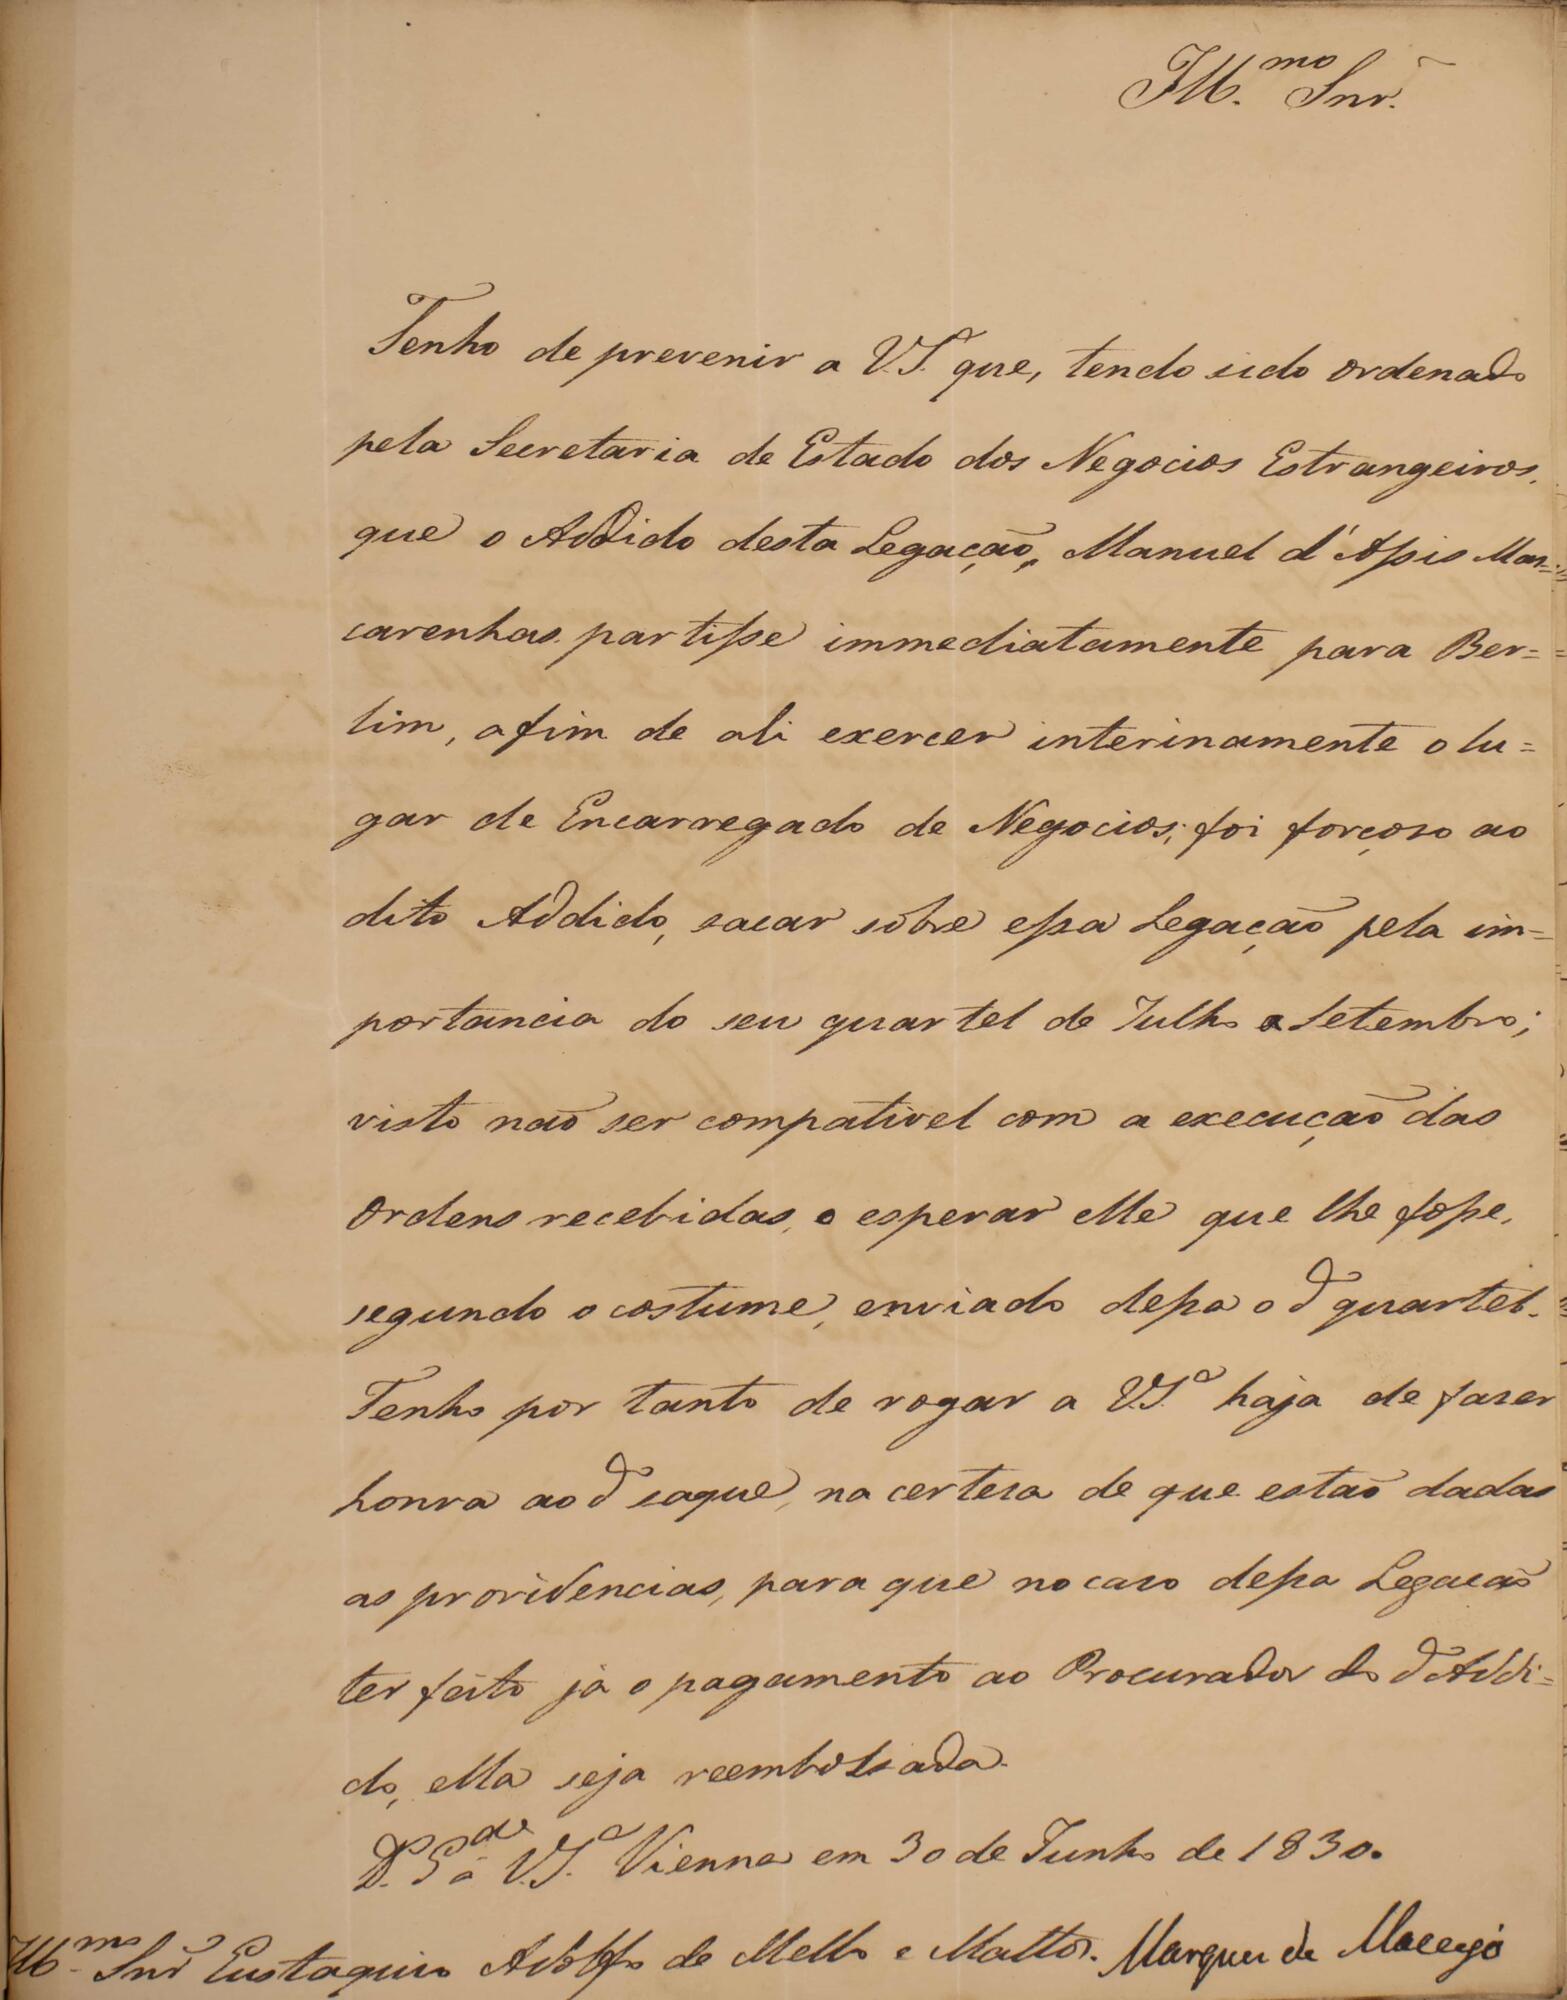 Ill.mo Snr.
Tenho de prevenir a V.S.a que, tendo sido ordenado
pela Secretaria de Estado dos Negocios Estrangeiros,
que o Addido desta Legação, Manuel d'Assis Mas=
carenhas partisse immediatamente para Ber=
lim, afim de ali exercer interinamente o lu=
gar de Encarregado de Negocios; foi forçoso ao
dito Addido, sacar sôbre essa Legação pela im=
portancia do seu quartel de Julho a Setembro;
visto não ser compativel com a execução das
Ordens recebidas, o esperar elle que lhe fosse,
segundo o costume, enviado dessa o dº quartel.
Tenho por tanto de rogar a V.S.a haja de fazer
honra ao dº saque, na certesa de que estão dadas
as providencias, para que no caso dessa Legacão
ter feito já o pagamento ao Procurador do dº Addi=
do, ella seja reembolsada.
D.s G.de a V.S.a Vienna em 30 de Junho de 1830.
Ill.mo Snr Eustaquio Adolfo de Mello e Mattos. Marquez de Maceyó